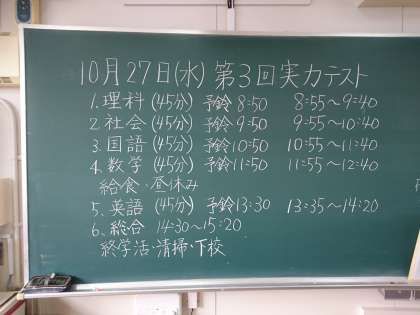 10月27日(水) 第3回実力テスト
1.理科 (45分) 予鈴 8:50 8:55〜9:40
2.社会 (45分) 予鈴 9:50 9:55〜10:40
3.国語 (45分) 予鈴10:50 10:55〜11:40
4.数学 (45分) 予鈴11:50 11:55〜12:40
給食・昼休み
5.英語 (45分) 予鈴13:30 13:35〜14:20
6.総合 14:30〜15:20
終学活・清掃・下校